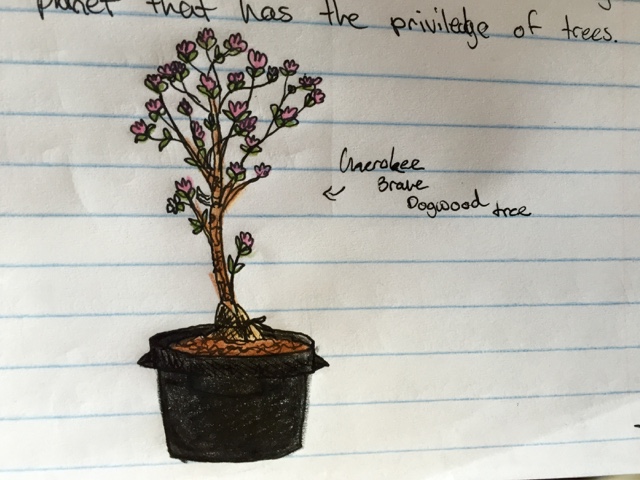 planet that has the priviledge of trees.
Cherokee
Brave
Dogwood tree